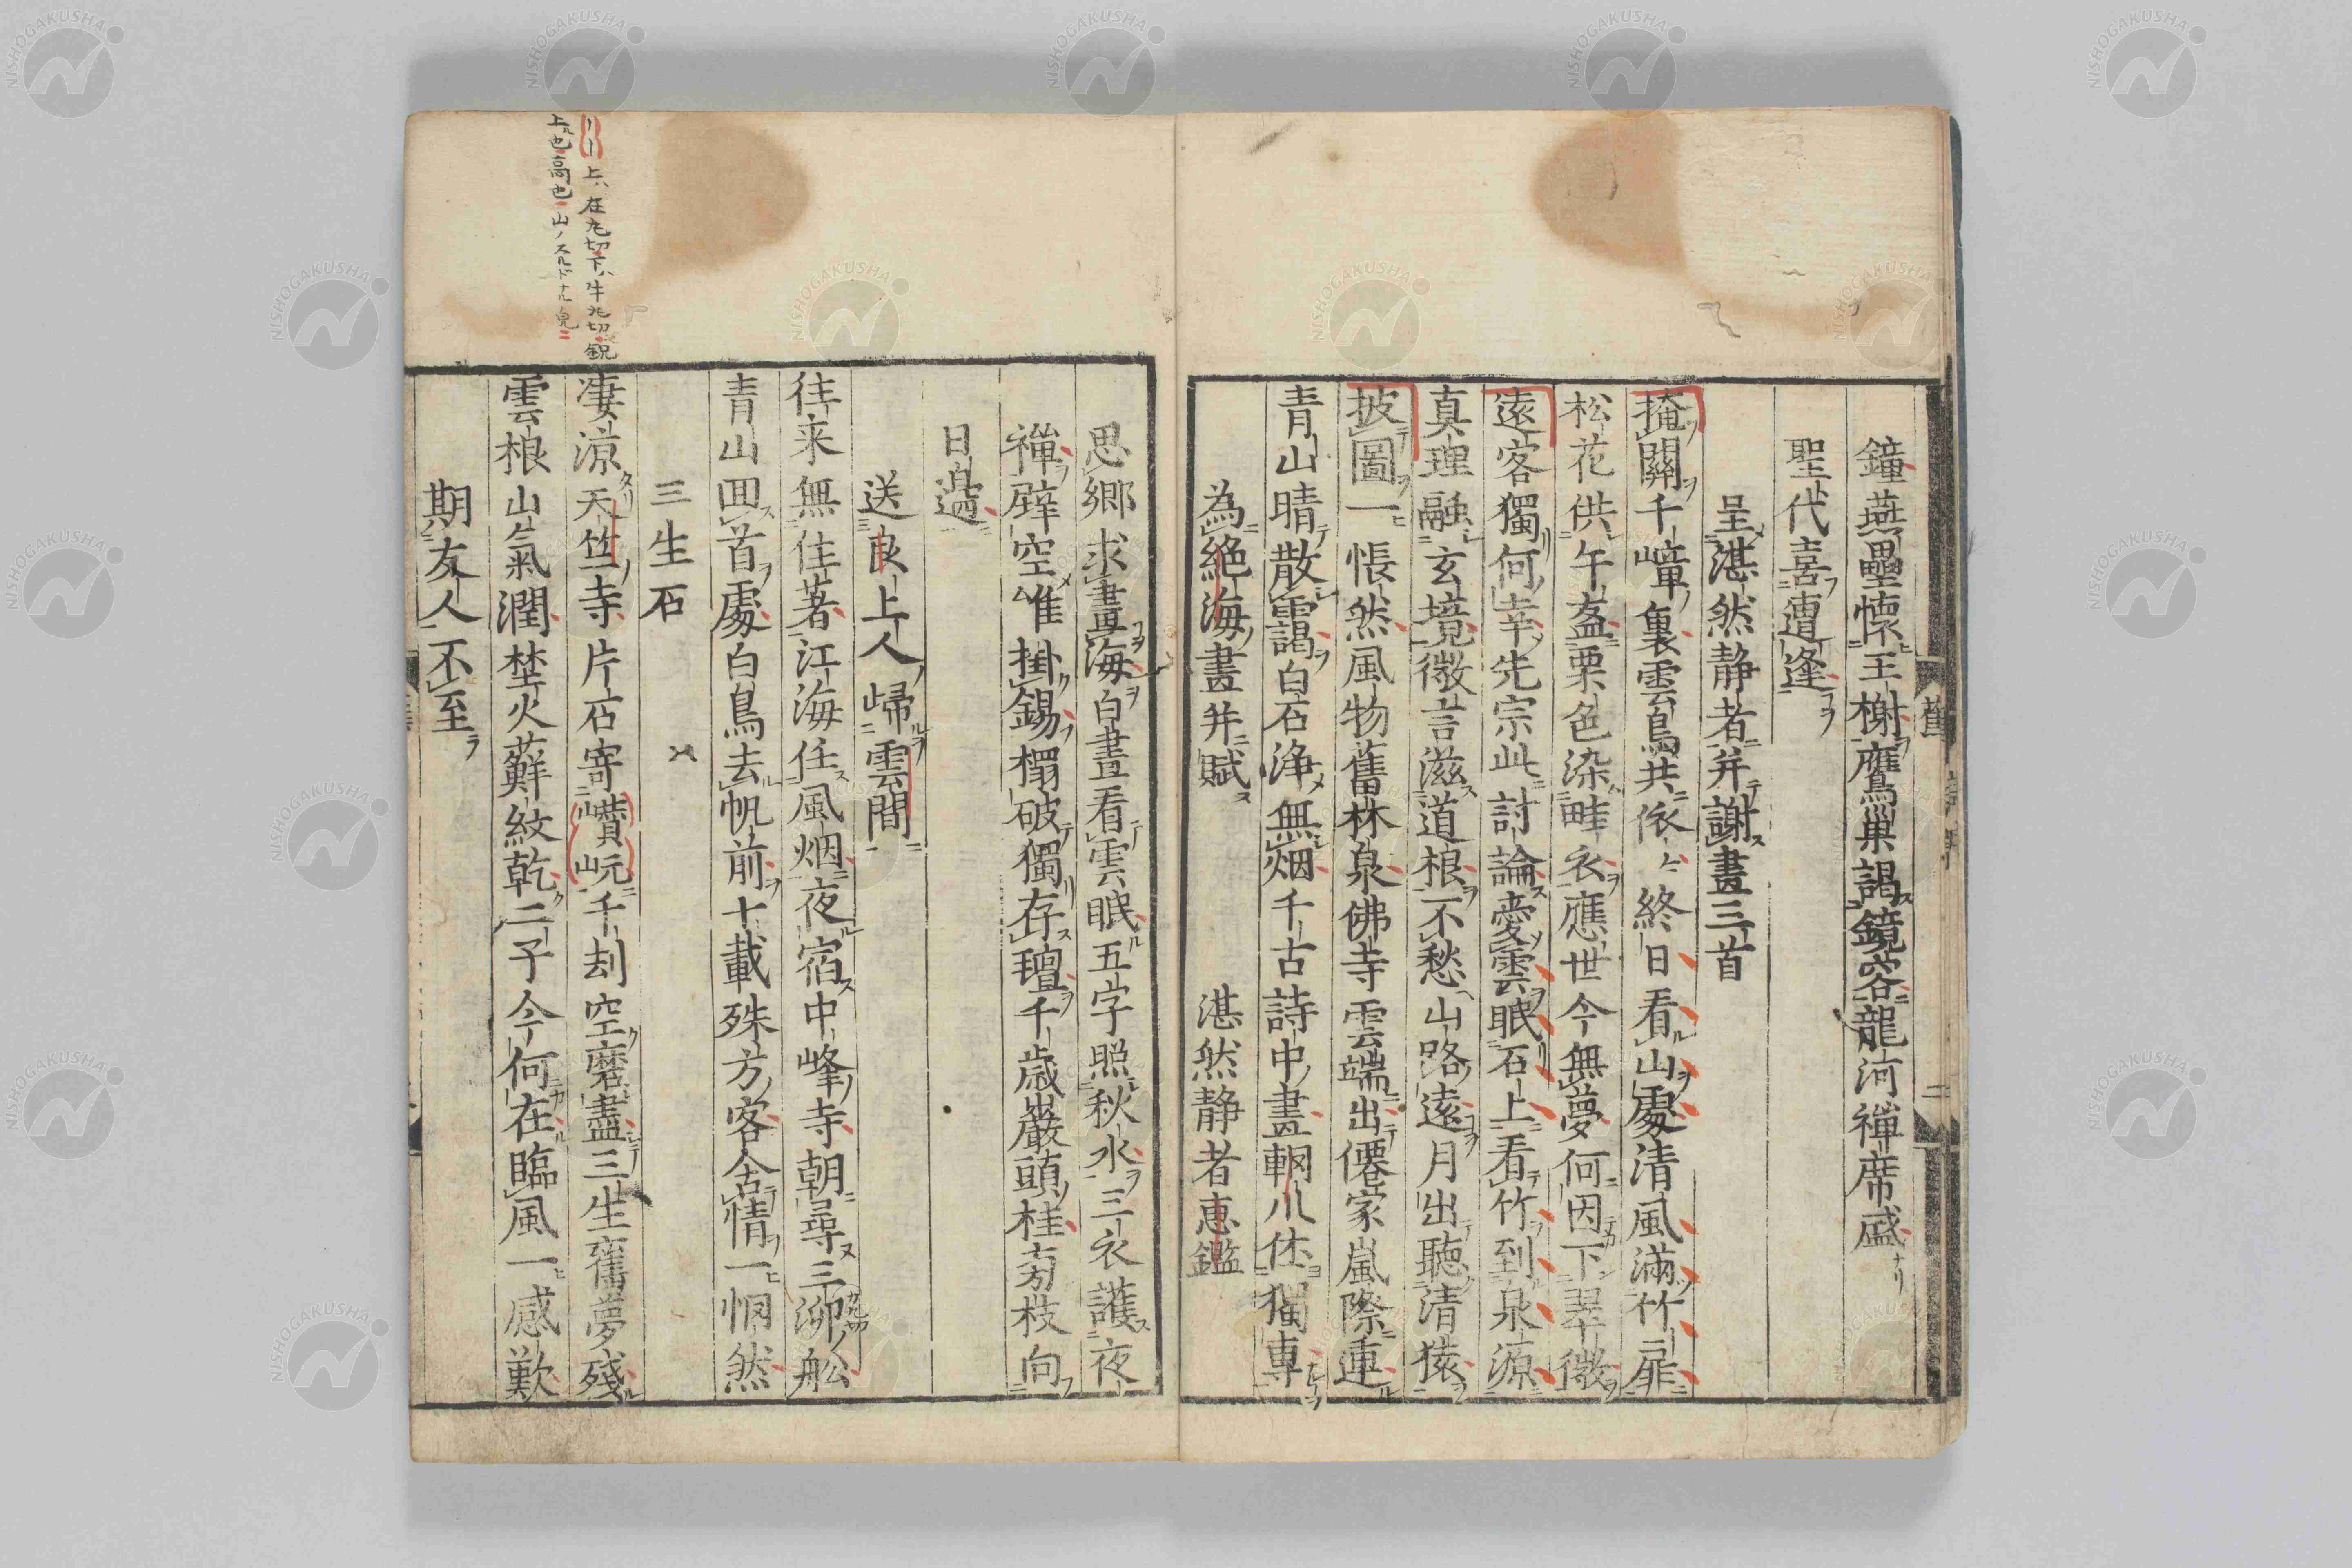 鐘燕壘懷王榭鷹巢謁鏡容龍河禪席盛
聖代喜遭逢
呈湛然静者并謝畫三首
掩關千嶂裏雲鳥共依〻終日看山處清風滿竹扉
松花供午盋栗色染畦衣應世今無夢何因下翠微
遠客獨何幸先宗此討論愛雲眠石上看竹到泉源
真理融玄境微言滋道根不愁山路遠月出聽清猿
披圖一悵然風物舊林泉佛寺雲端出僊家嵐際連
青山晴散靄白石浄無烟千古詩中畫輞川佳獨專
為絶海畫并賦 湛然静者恵鑑
思郷求畫海白晝看雲眠五字照秋水三衣護夜
禪壁空唯掛錫榻破獨存璮千歳巖頭桂芳枝向
日邉
送良上人歸雲間
往来無住著江海任風烟夜宿中峰寺朝尋三泖舩
青山囬首處白鳥去帆前十載殊方客含情一惘然
三生石
凄凉天竺寺片石寄巑岏千刦空磨盡三生舊夢殘
雲根山氣潤埜火蘚紋乾二子今何在臨風一感歎
期友人不至
上ハ在丸切下ハ牛丸切鋭
上也高也山ノスルドナル皃
NISHOGAKUSHA